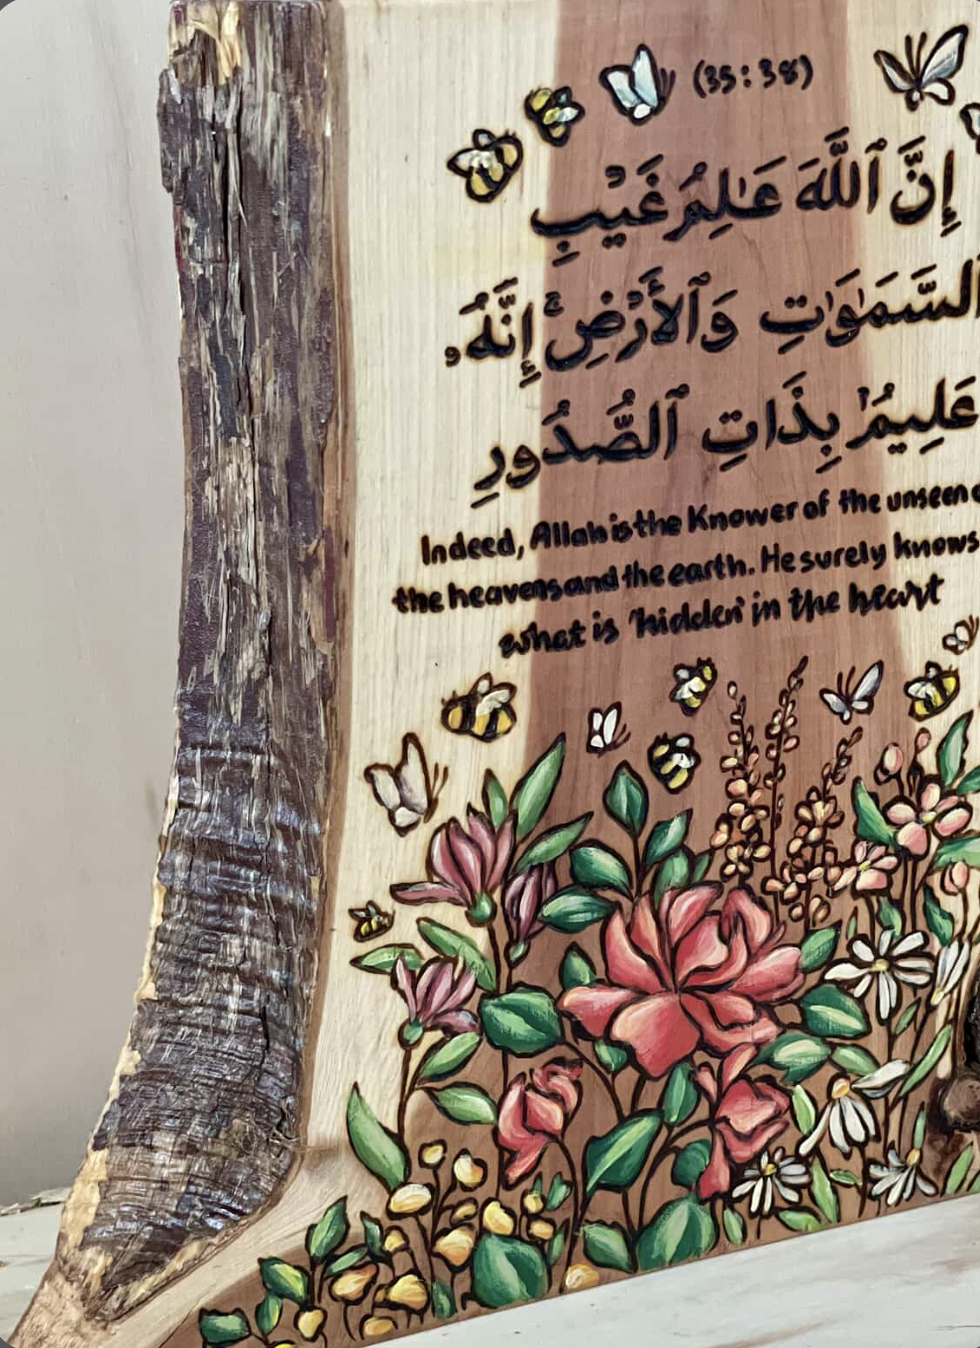 (35:38)
إِنَّ ٱللَّهَ عَـٰلِمُ غَيْبِ
ٱلسَّمَـٰوَٰتِ وَٱلْأَرْضِ ۚ إِنَّهُۥ
عَلِيمٌۢ بِذَاتِ ٱلصُّدُورِ
Indeed, Allah is the Knower of the unseen
the heavens and the earth. He surely knows
what is 'hidden' in the heart